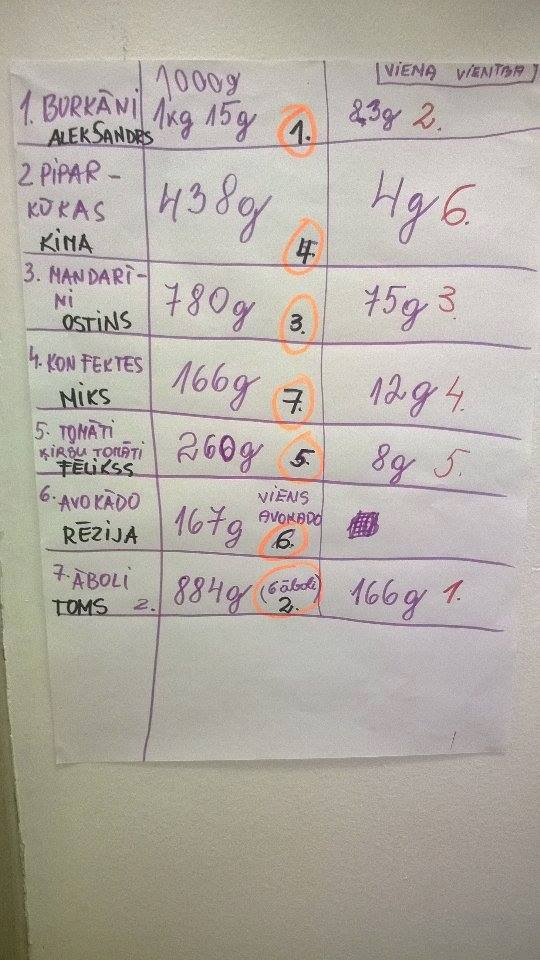 1000g
VIENA VIENĪBA
1. BURKĀNI 1kg 15g 1. 83g 2.
ALEKSANDRS
2 PIPAR-
KŪKAS 438g 4g 6.
KIMA 4.
3. MANDARĪ-
NI 780g 75g 3.
OSTINS 3.
4. KONFEKTES 166g 12g 4.
NIKS 7.
5. TOMĀTI
ĶIRBU TOMĀTI 260g 5. 8g 5.
FĒLIKSS
6. AVOKĀDO 167g VIENS
AVOKADO
RĒZIJA 6.
7. ĀBOLI 884g (6 āboli) 166g 1.
TOMS 2. 2.